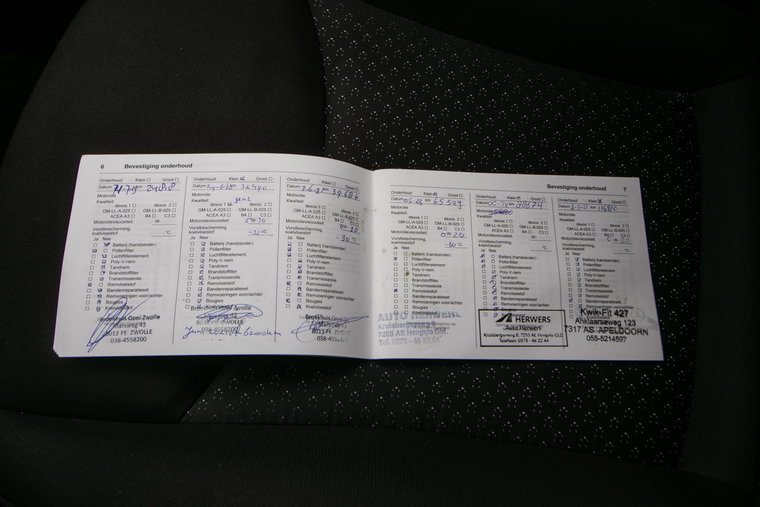 6 Bevestiging onderhoud
Onderhoud: Klein Groot
Datum km
Motorolie
Kwaliteit:
dexos 1 dexos 2
GM-LL-A-025 GM-LL-B-025
ACEA A3 B4 C3
Motorolieviscositeit W-
Vorstbescherming
koelvloeistof °C
Ja Nee
Batterij (handzender)
Pollenfilter
Luchtfilterelement
Poly-V-riem
Tandriem
Brandstoffilter
Transmissieolie
Remvloeistof
Bandenreparatieset
Remvoeringen voor/achter
Bougies
Koelvloeistof
Broekhuis Opel Zwolle
Marsweg 43
8013 PE ZWOLLE
038-4558200
Onderhoud: Klein Groot
Datum km 32490
Motorolie
Kwaliteit:
dexos 1 dexos 2
GM-LL-A-025 GM-LL-B-025
ACEA A3 B4 C3
Motorolieviscositeit
Vorstbescherming
koelvloeistof
Ja Nee
Batterij (handzender)
Pollenfilter
Luchtfilterelement
Poly-V-riem
Tandriem
Brandstoffilter
Transmissieolie
Remvloeistof
Bandenreparatieset
Remvoeringen voor/achter
Bougies
Koelvloeistof
Zwolle
ZWOLLE
038-4558200
Onderhoud: Klein Groot
Datum
Motorolie
Kwaliteit:
dexos 1 dexos 2
GM-LL-A-025 GM-LL-B-025
ACEA A3 B4 C3
Motorolieviscositeit
Vorstbescherming
koelvloeistof -30°C
Ja Nee
Batterij (handzender)
Pollenfilter
Luchtfilterelement
Poly-V-riem
Tandriem
Brandstoffilter
Transmissieolie
Remvloeistof
Bandenreparatieset
Remvoeringen voor/achter
Bougies
Koelvloeistof
Bevestiging onderhoud 7
Onderhoud: Klein Groot
Datum 65549
Motorolie
Kwaliteit:
dexos 1 dexos 2
GM-LL-A-025 GM-LL-B-025
ACEA A3 B4 C3
Motorolieviscositeit
Vorstbescherming
koelvloeistof -30°C
Ja Nee
Batterij (handzender)
Pollenfilter
Luchtfilterelement
Poly-V-riem
Tandriem
Brandstoffilter
Transmissieolie
Remvloeistof
Bandenreparatieset
Remvoeringen voor/achter
Bougies
Koelvloeistof
AUTO
Kruisbergseweg 8
7255 AR Hengelo
Tel. 0575 - 46 22 44
Onderhoud: Klein Groot
Datum km
Motorolie
Kwaliteit:
dexos 1 dexos 2
GM-LL-A-025 GM-LL-B-025
ACEA A3 B4 C3
Motorolieviscositeit
Vorstbescherming
koelvloeistof °C
Ja Nee
Batterij (handzender)
Pollenfilter
Luchtfilterelement
Poly-V-riem
Tandriem
Brandstoffilter
Transmissieolie
Remvloeistof
Bandenreparatieset
Remvoeringen voor/achter
HERWERS
Auto Herwers
Kruisbergseweg 8, 7255 AR Hengelo GLD
Telefoon: 0575 - 46 22 44
Onderhoud: Klein Groot
Datum km
Motorolie
Kwaliteit:
dexos 1 dexos 2
GM-LL-A-025 GM-LL-B-025
ACEA A3 B4 C3
Motorolieviscositeit
Vorstbescherming
koelvloeistof °C
Ja Nee
Batterij (handzender)
Pollenfilter
Luchtfilterelement
Poly-V-riem
Tandriem
Brandstoffilter
Transmissieolie
Remvloeistof
Bandenreparatieset
Remvoeringen voor/achter
Kwik-Fit 427
Anklaarseweg 123
7317 AS APELDOORN
055-5214597